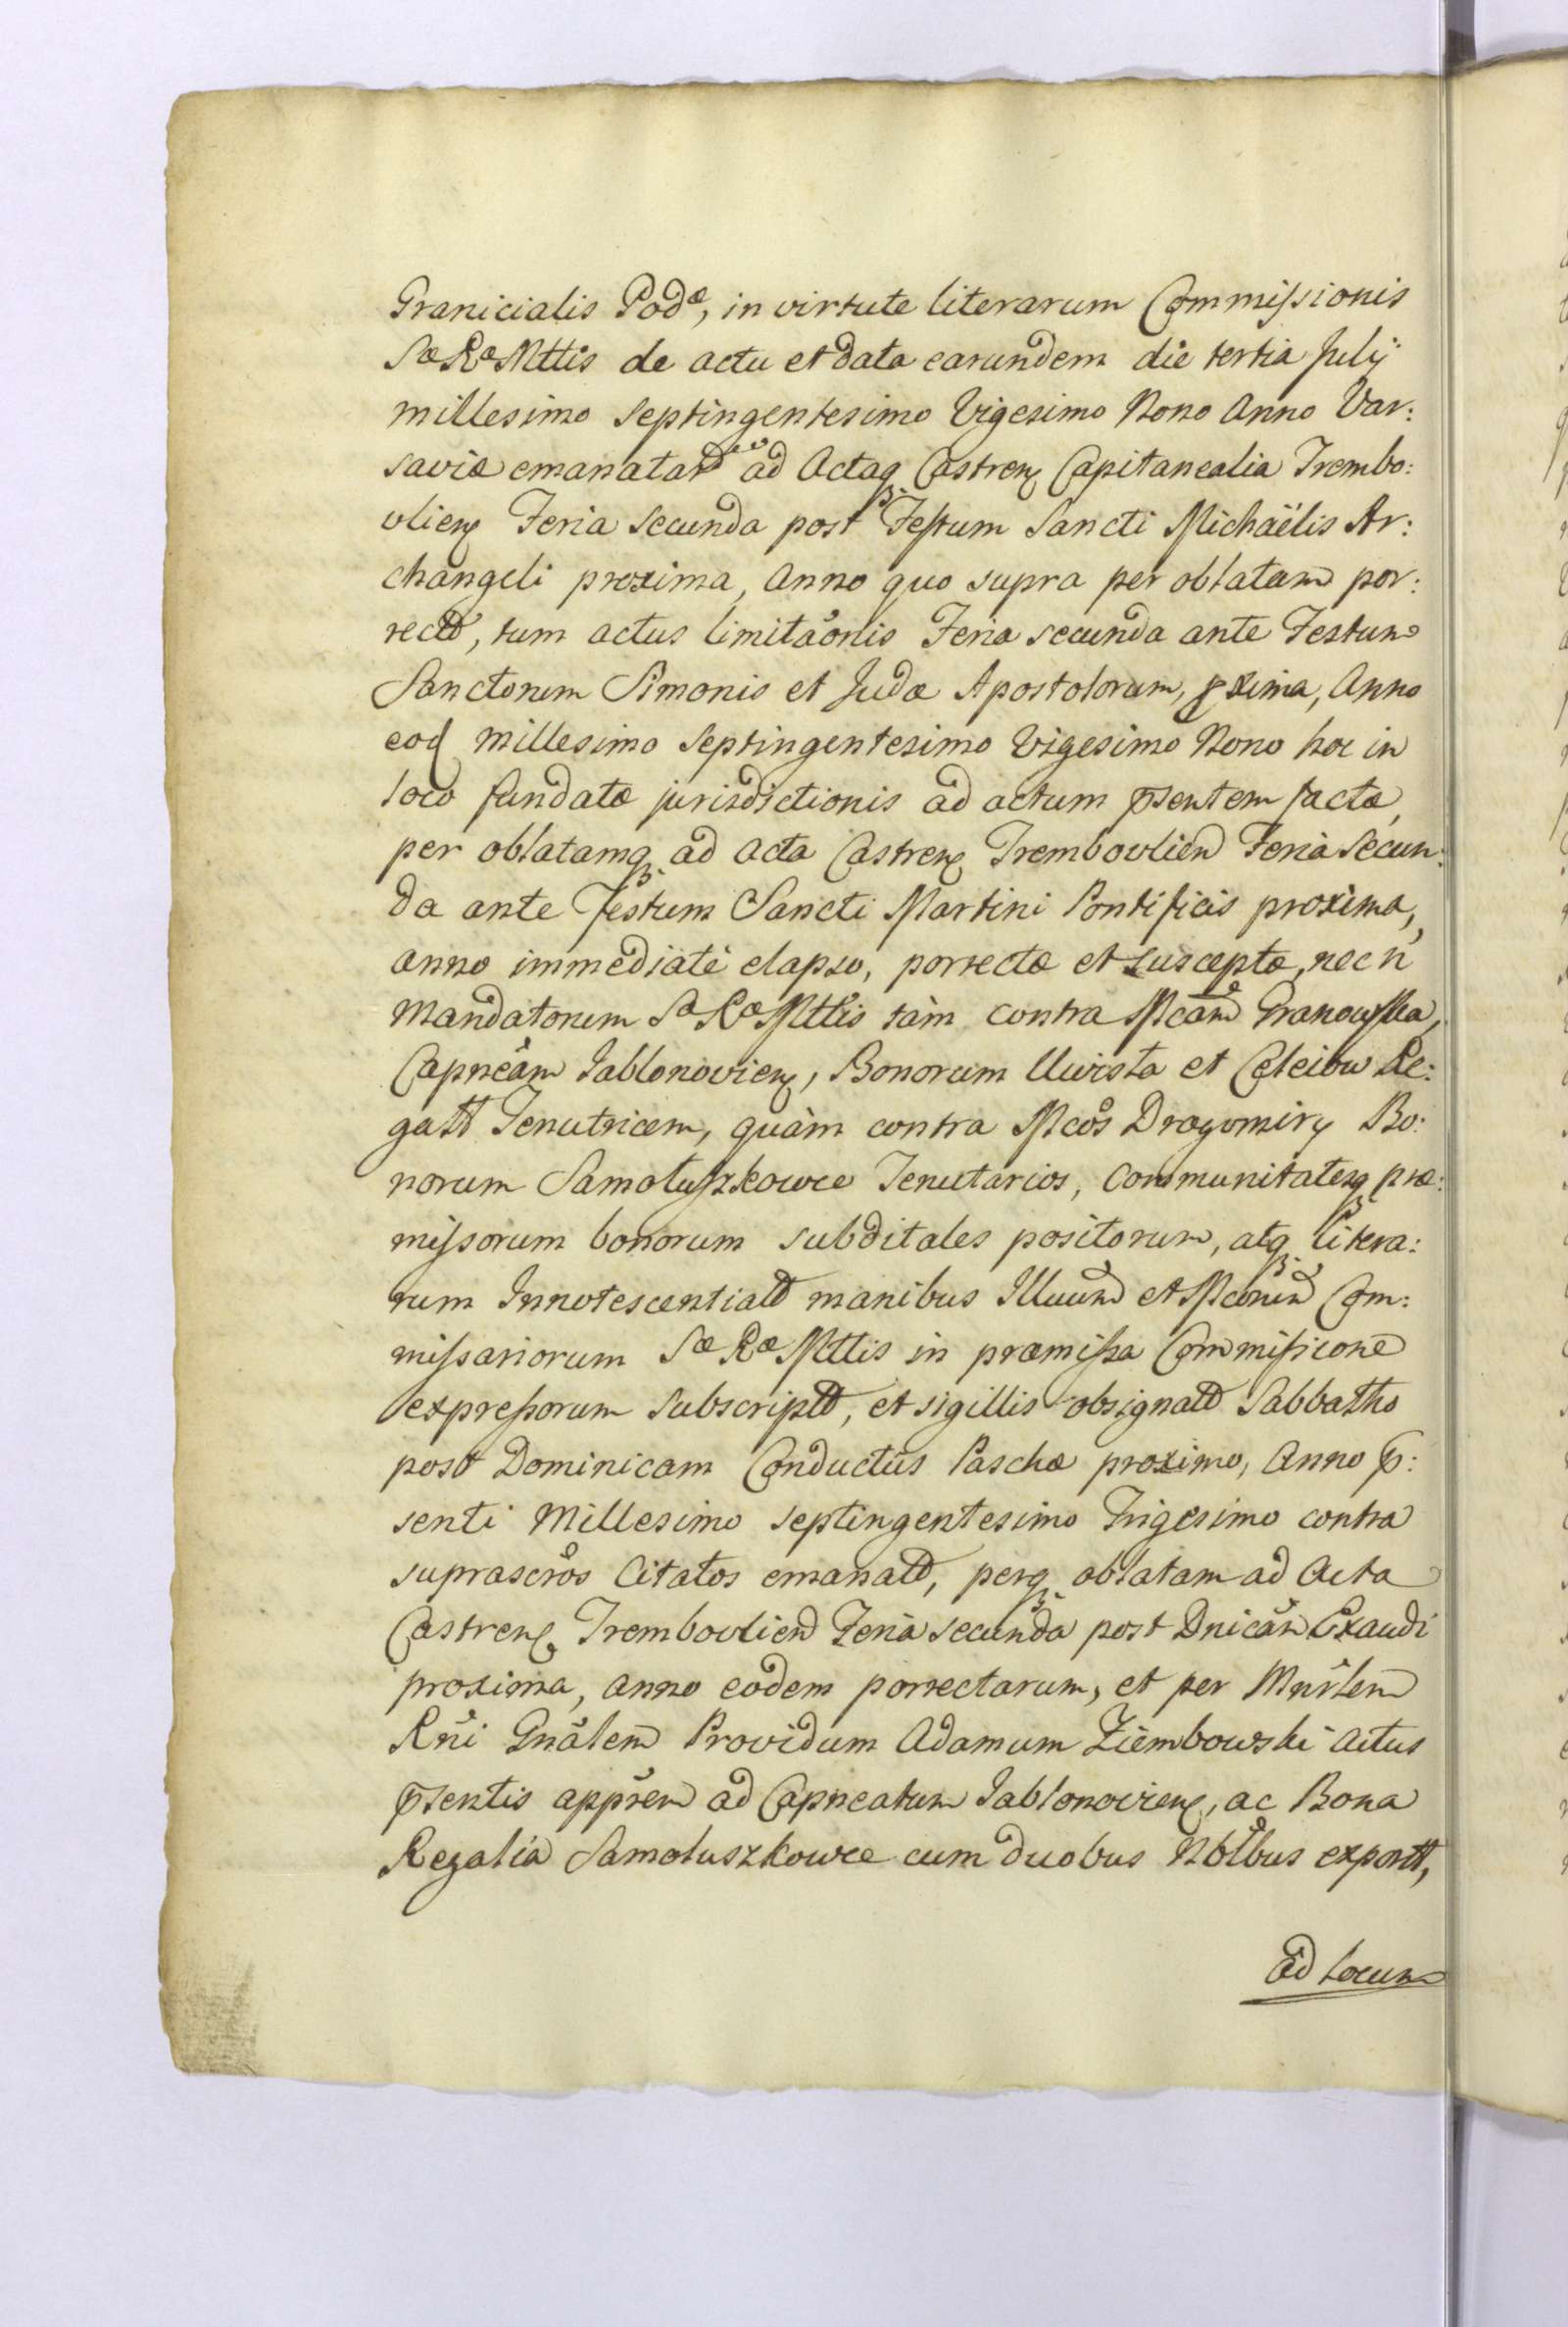 Granicialis Podæ, in virtute literarum Commissionis
Sæ Ræ Mttis de actu et data earundem die tertia Julij
millesimo Septingentesimo Vigesimo Nono Anno Var:
saviæ emanatar ad Actaq Castren Capitanealia Trembo:
vlien Feria Secunda post Festum Sancti Michaëlis Ar:
changeli proxima, Anno quo supra per oblatam por:
rectt, tum actus limitaõnis Feria secunda ante Festum
Sanctorum Simonis et Judæ Apostolorum, pxima, Anno
eod millesimo Septingentesimo Vigesimo Nono hoc in
loco fundatæ jurisdictionis ad actum psentem factæ,
per oblatamq ad Acta Castren Trembovlien Feria Secun:
da ante Festum Sancti Martini Pontificis proxima,
anno immediatè elapso, porrectæ et susceptæ, nec n
Mandatorum Sæ Ræ Mttis tàm contra Mcam Granowska,
Capneam Jablonovien, Bonorum Uwisla et Celeiow Re:
galt Tenutricem, quàm contra Mcos Dragomiry Bo:
norum Samoluszkowce Tenutarios, Communitatesq præ:
missorum bonorum subditales positorum, atq litera:
rum Innotescentialt manibus Illuum et Mcorum Com:
missariorum Sæ Ræ Mttis in præmissa Commissione
expressorum subscriptt, et sigillis obsignatt Sabbatho
post Dominicam Conductûs Paschæ proximo, Anno p:
senti Millesimo septingentesimo Trigesimo contra
suprascros Citatos emanatt, perq oblatam ad Acta
Castren Trembovlien Feria secunda post Dnicam Exaudi
proxima, anno eodem porrectarum, et per Mnrlem
Rñi Gnãlem Providum Adamum Ziembowski actus
psentis appren ad Capneatum Jablonovien, ac Bona
Regalia Samoluszkowce cum duobus Nblbus exportt,
ad locum